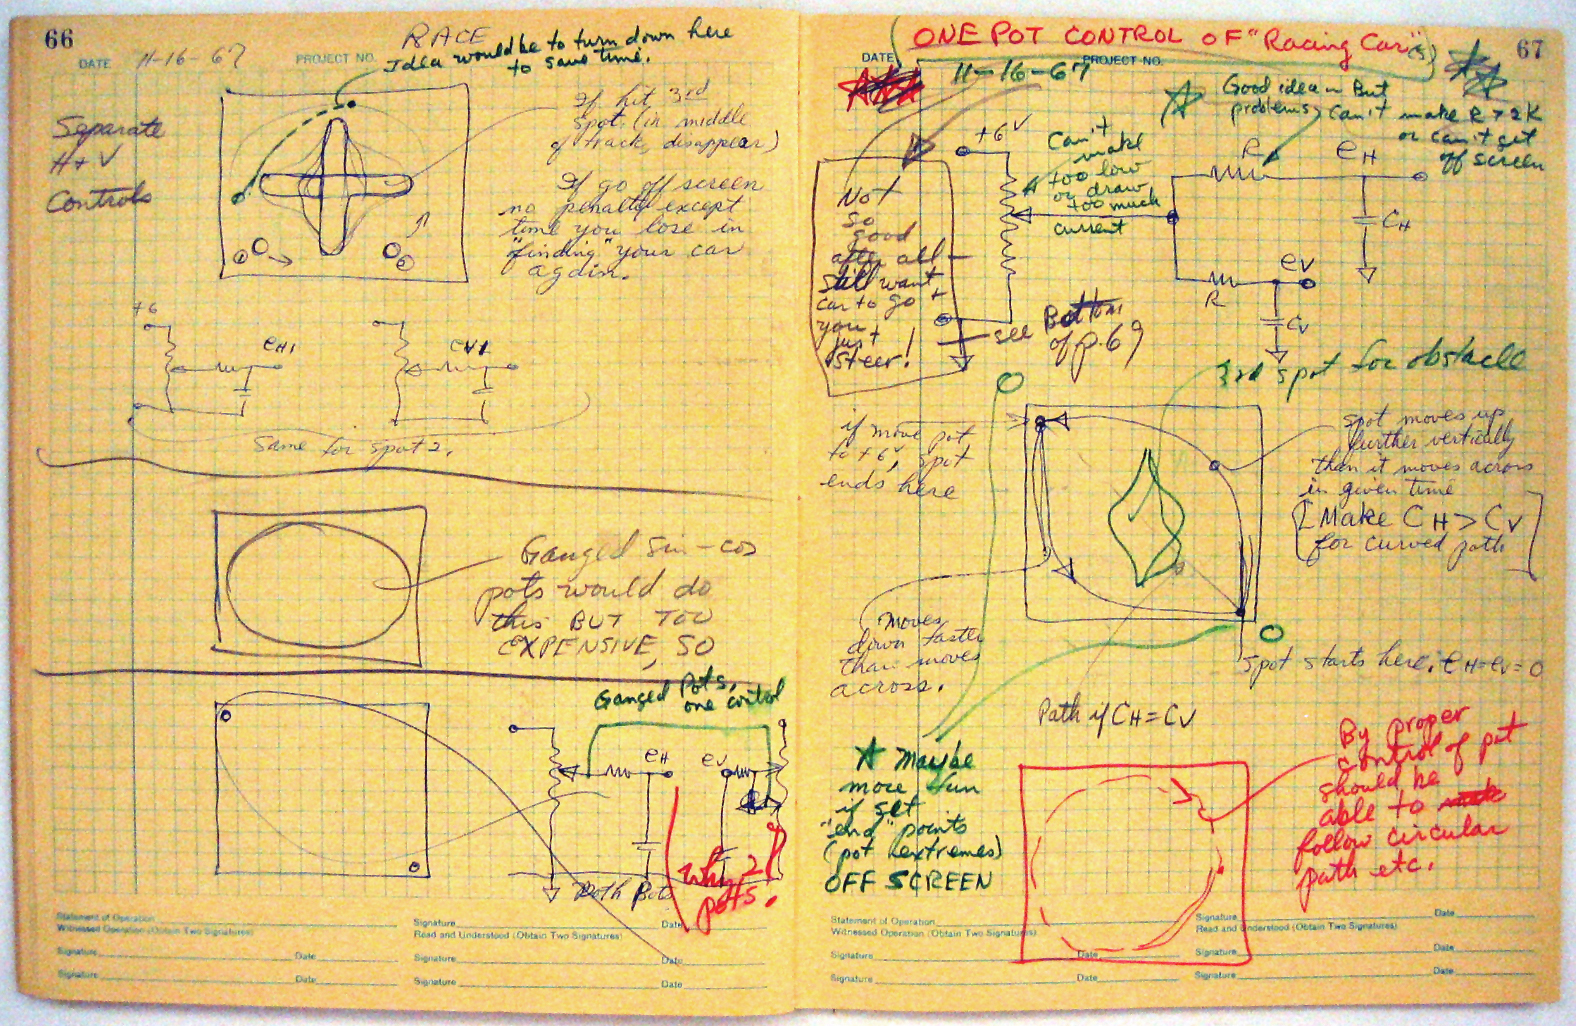 66
DATE 11-16-67 PROJECT NO. RACE
Idea would be to turn down here
to save time.
Separate
H + V
Controls
If hit 3rd
spot (in middle
of track, disappear)
If go off screen
no penalty except
time you lose in
"finding" your car
again.
+6
eH1
eV1
Same for spot 2.
Ganged Sin-cos
pots would do
this BUT TOO
EXPENSIVE, SO
Ganged Pots,
one control
eH
eV
Both Pots
Why 2
pots.
Statement of Operation
Witnessed Operation (Obtain Two Signatures)
Signature Date
Signature Date
Signature Date
Read and Understood (Obtain Two Signatures)
Signature Date
Signature Date
67
ONE POT CONTROL OF "Racing Car"(s)
DATE 11-16-67 PROJECT NO.
Good idea - But
problems, Can't make R > 2K
or can't get
off screen
+6V
Can't
make
too low
or draw
too much
current
R
eH
CH
R
eV
CV
Not
so
good
after all -
still want
car to go +
you
just
steer!
see Bottom
of p.69
3rd spot for obstacle
if move pot
to +6V, spot
ends here
spot moves up
further vertically
than it moves across
in given time
[Make CH > CV
for curved path]
Moves
down faster
than moves
across.
Spot starts here. eH=eV=0
Path if CH = CV
Maybe
more fun
if set
"end" points
(pot extremes)
OFF SCREEN
By proper
control of pot
should be
able to
follow circular
path etc.
Statement of Operation
Witnessed Operation (Obtain Two Signatures)
Signature Date
Signature Date
Signature Date
Read and Understood (Obtain Two Signatures)
Signature Date
Signature Date